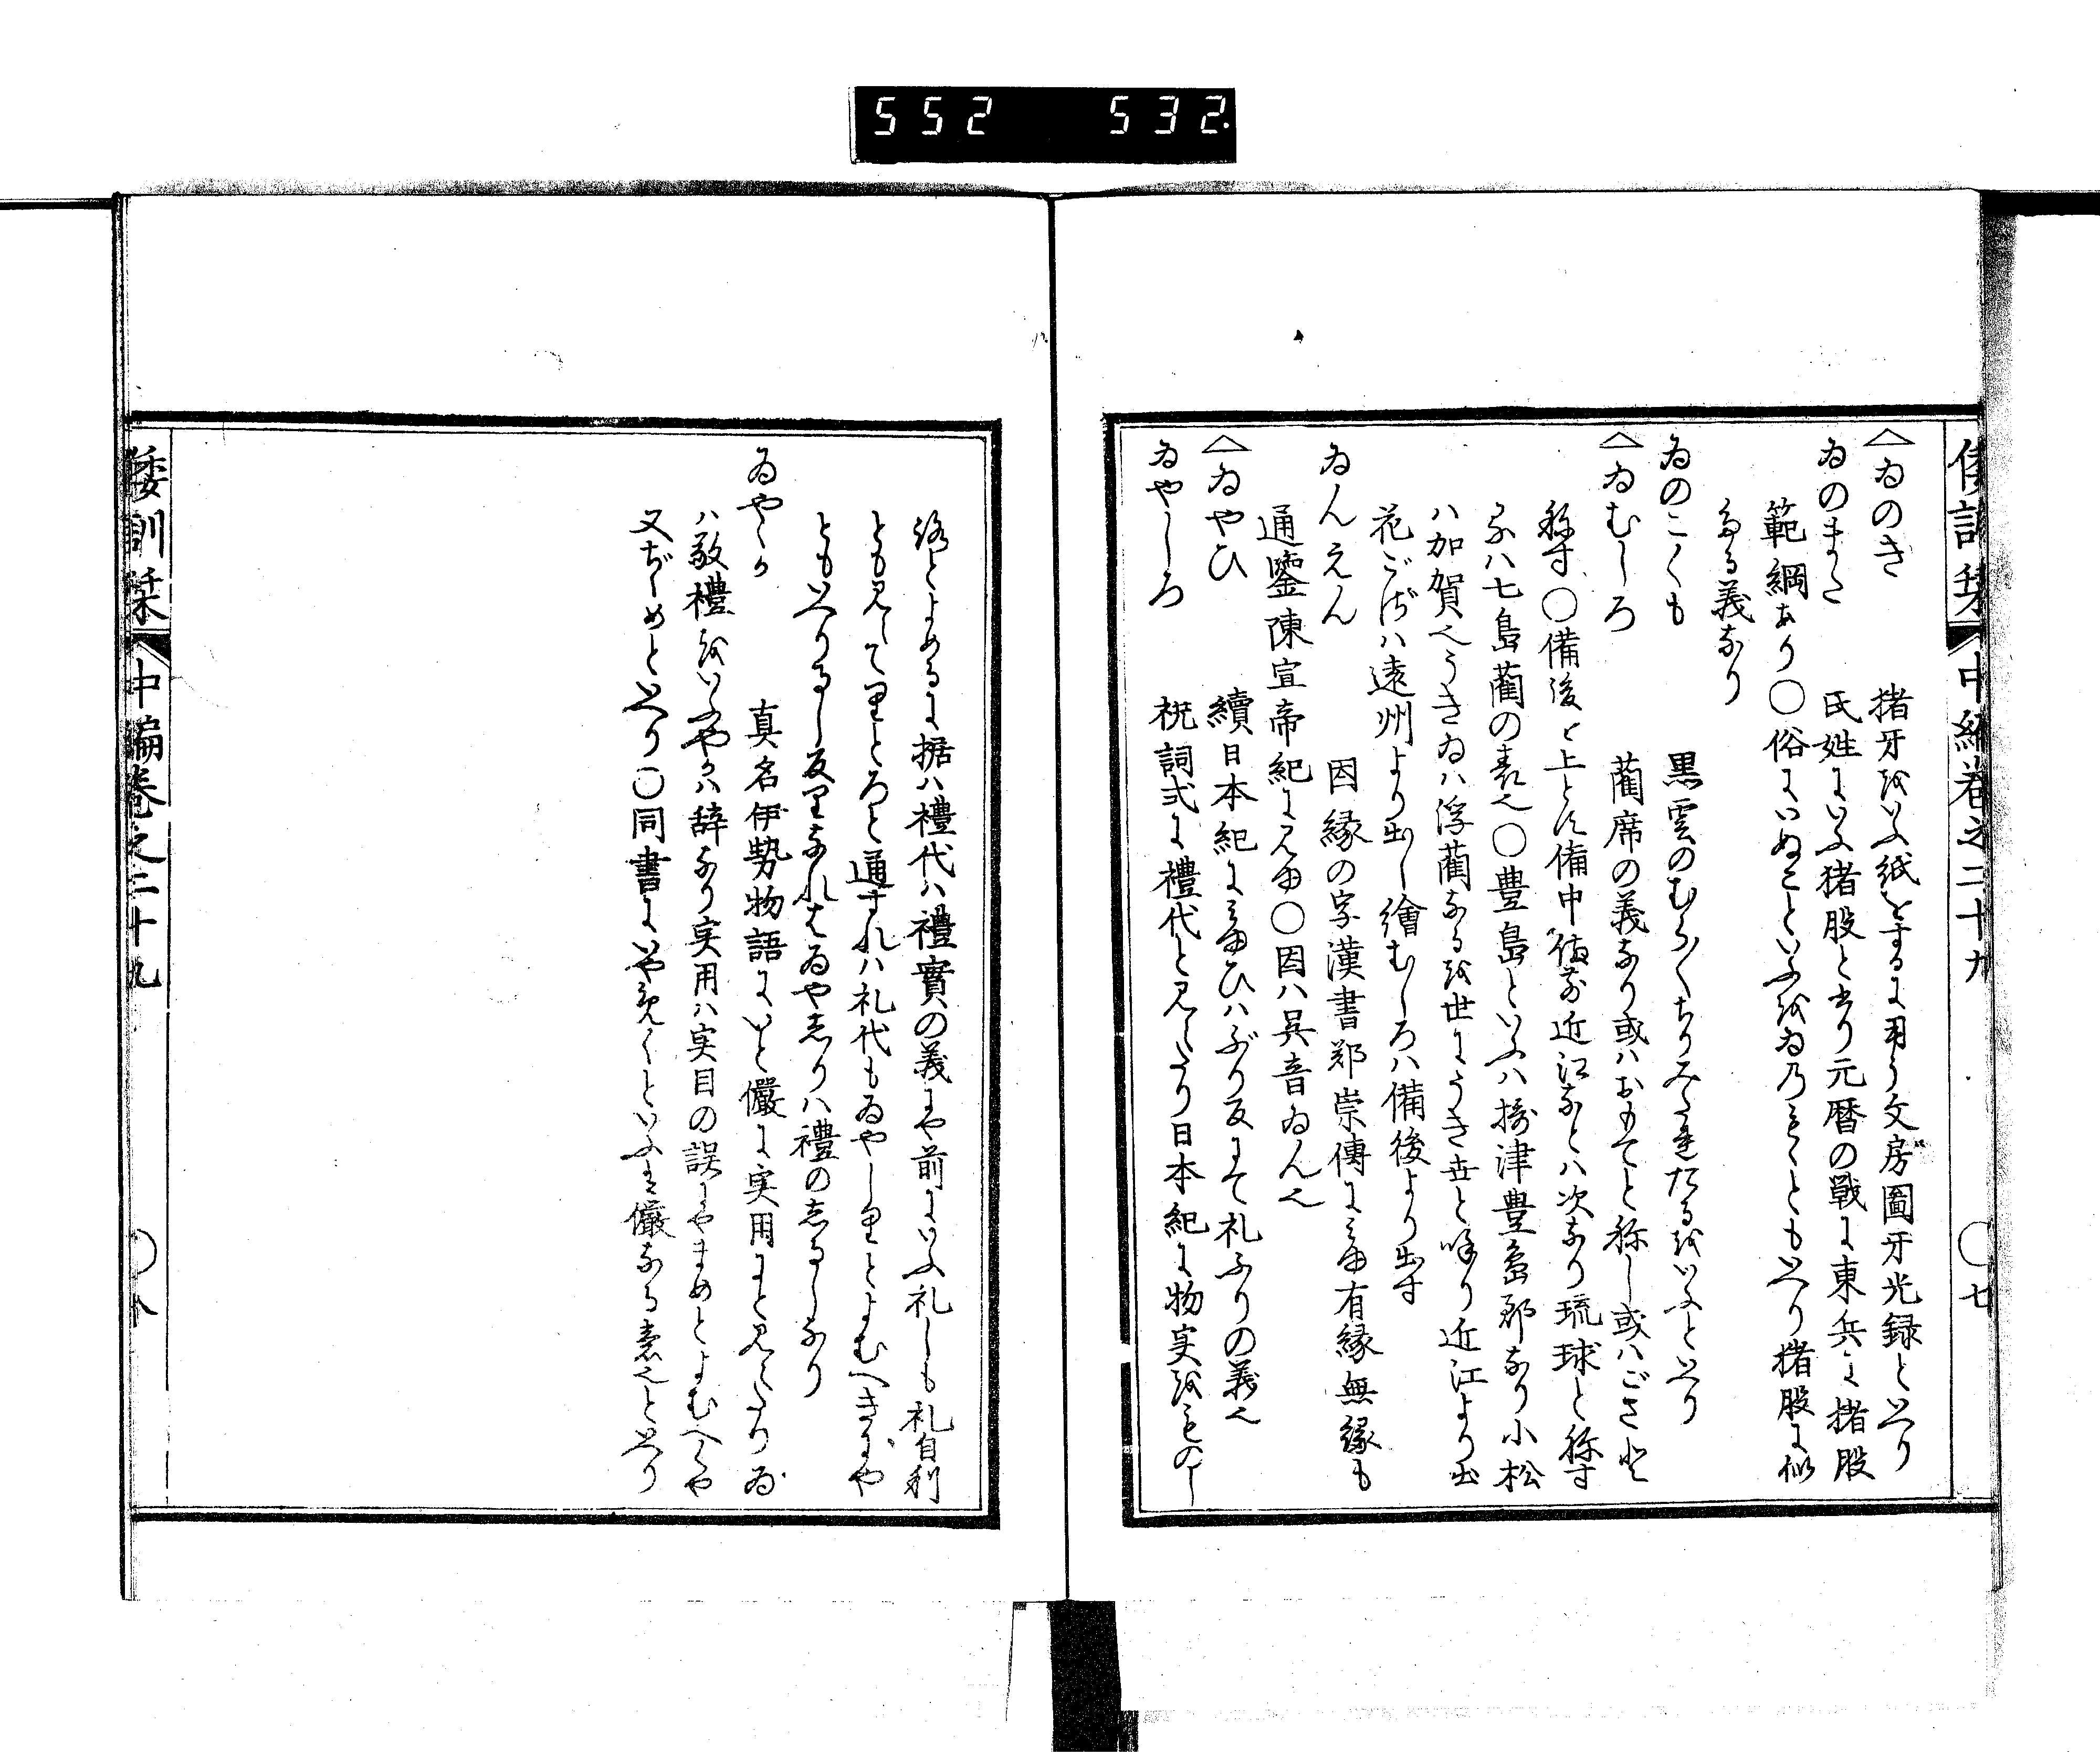 552 532
倭訓栞 中編巻之二十九 〇七
△ゐのき 猪牙をいふ紙をするに用う文房圖牙光録といへり
ゐのまた 氏姓にいふ猪股と書り元暦の戦に東兵に猪股
範綱あり〇俗にいぬことといふをゐのこくともいへり猪股に似
たる義なり
ゐのこくも 黒雲のむら〳〵ちりみだれたるをいふといへり
△ゐむしろ 藺席の義なり或はおもてと称し或ハござと
称す〇備後を上とす備中備前近江なとハ次なり琉球と称す
るハ七島藺の表也〇豊島といふハ摂津豊島郡なり小松
ハ加賀也うきゐハ浮藺なるを世にうき世と呼り近江より出
花ござハ遠州より出し繪むしろハ備後より出す
ゐんえん 因縁の字漢書鄭崇傳にみゆ有縁無縁も
通鑒陳宣帝紀に見ゆ〇因ハ呉音ゐん也
△ゐやひ 續日本紀にみゆひハぶり反にて礼ふりの義也
ゐやしろ 祝詞式に禮代と見えたり日本紀に物実をものし
ろとよめるに據ハ禮代ハ禮實の義にや前にいふ礼しも礼自利
とも見えて里とろと通すれハ礼代もゐやしりとよむへきにや
ともいへりるし反りなれはゐやしりハ禮のしるしなり
ゐやゝか 真名伊勢物語にいと儼に実用にと見えたりゐ
ハ敬禮をいふやかハ辞なり実用ハ実目の誤にやまめとよむへくや
又ぢゝめといへり〇同書にいやゝくといふも儼なる意也といへり
倭訓栞 中編巻之二十九 〇八